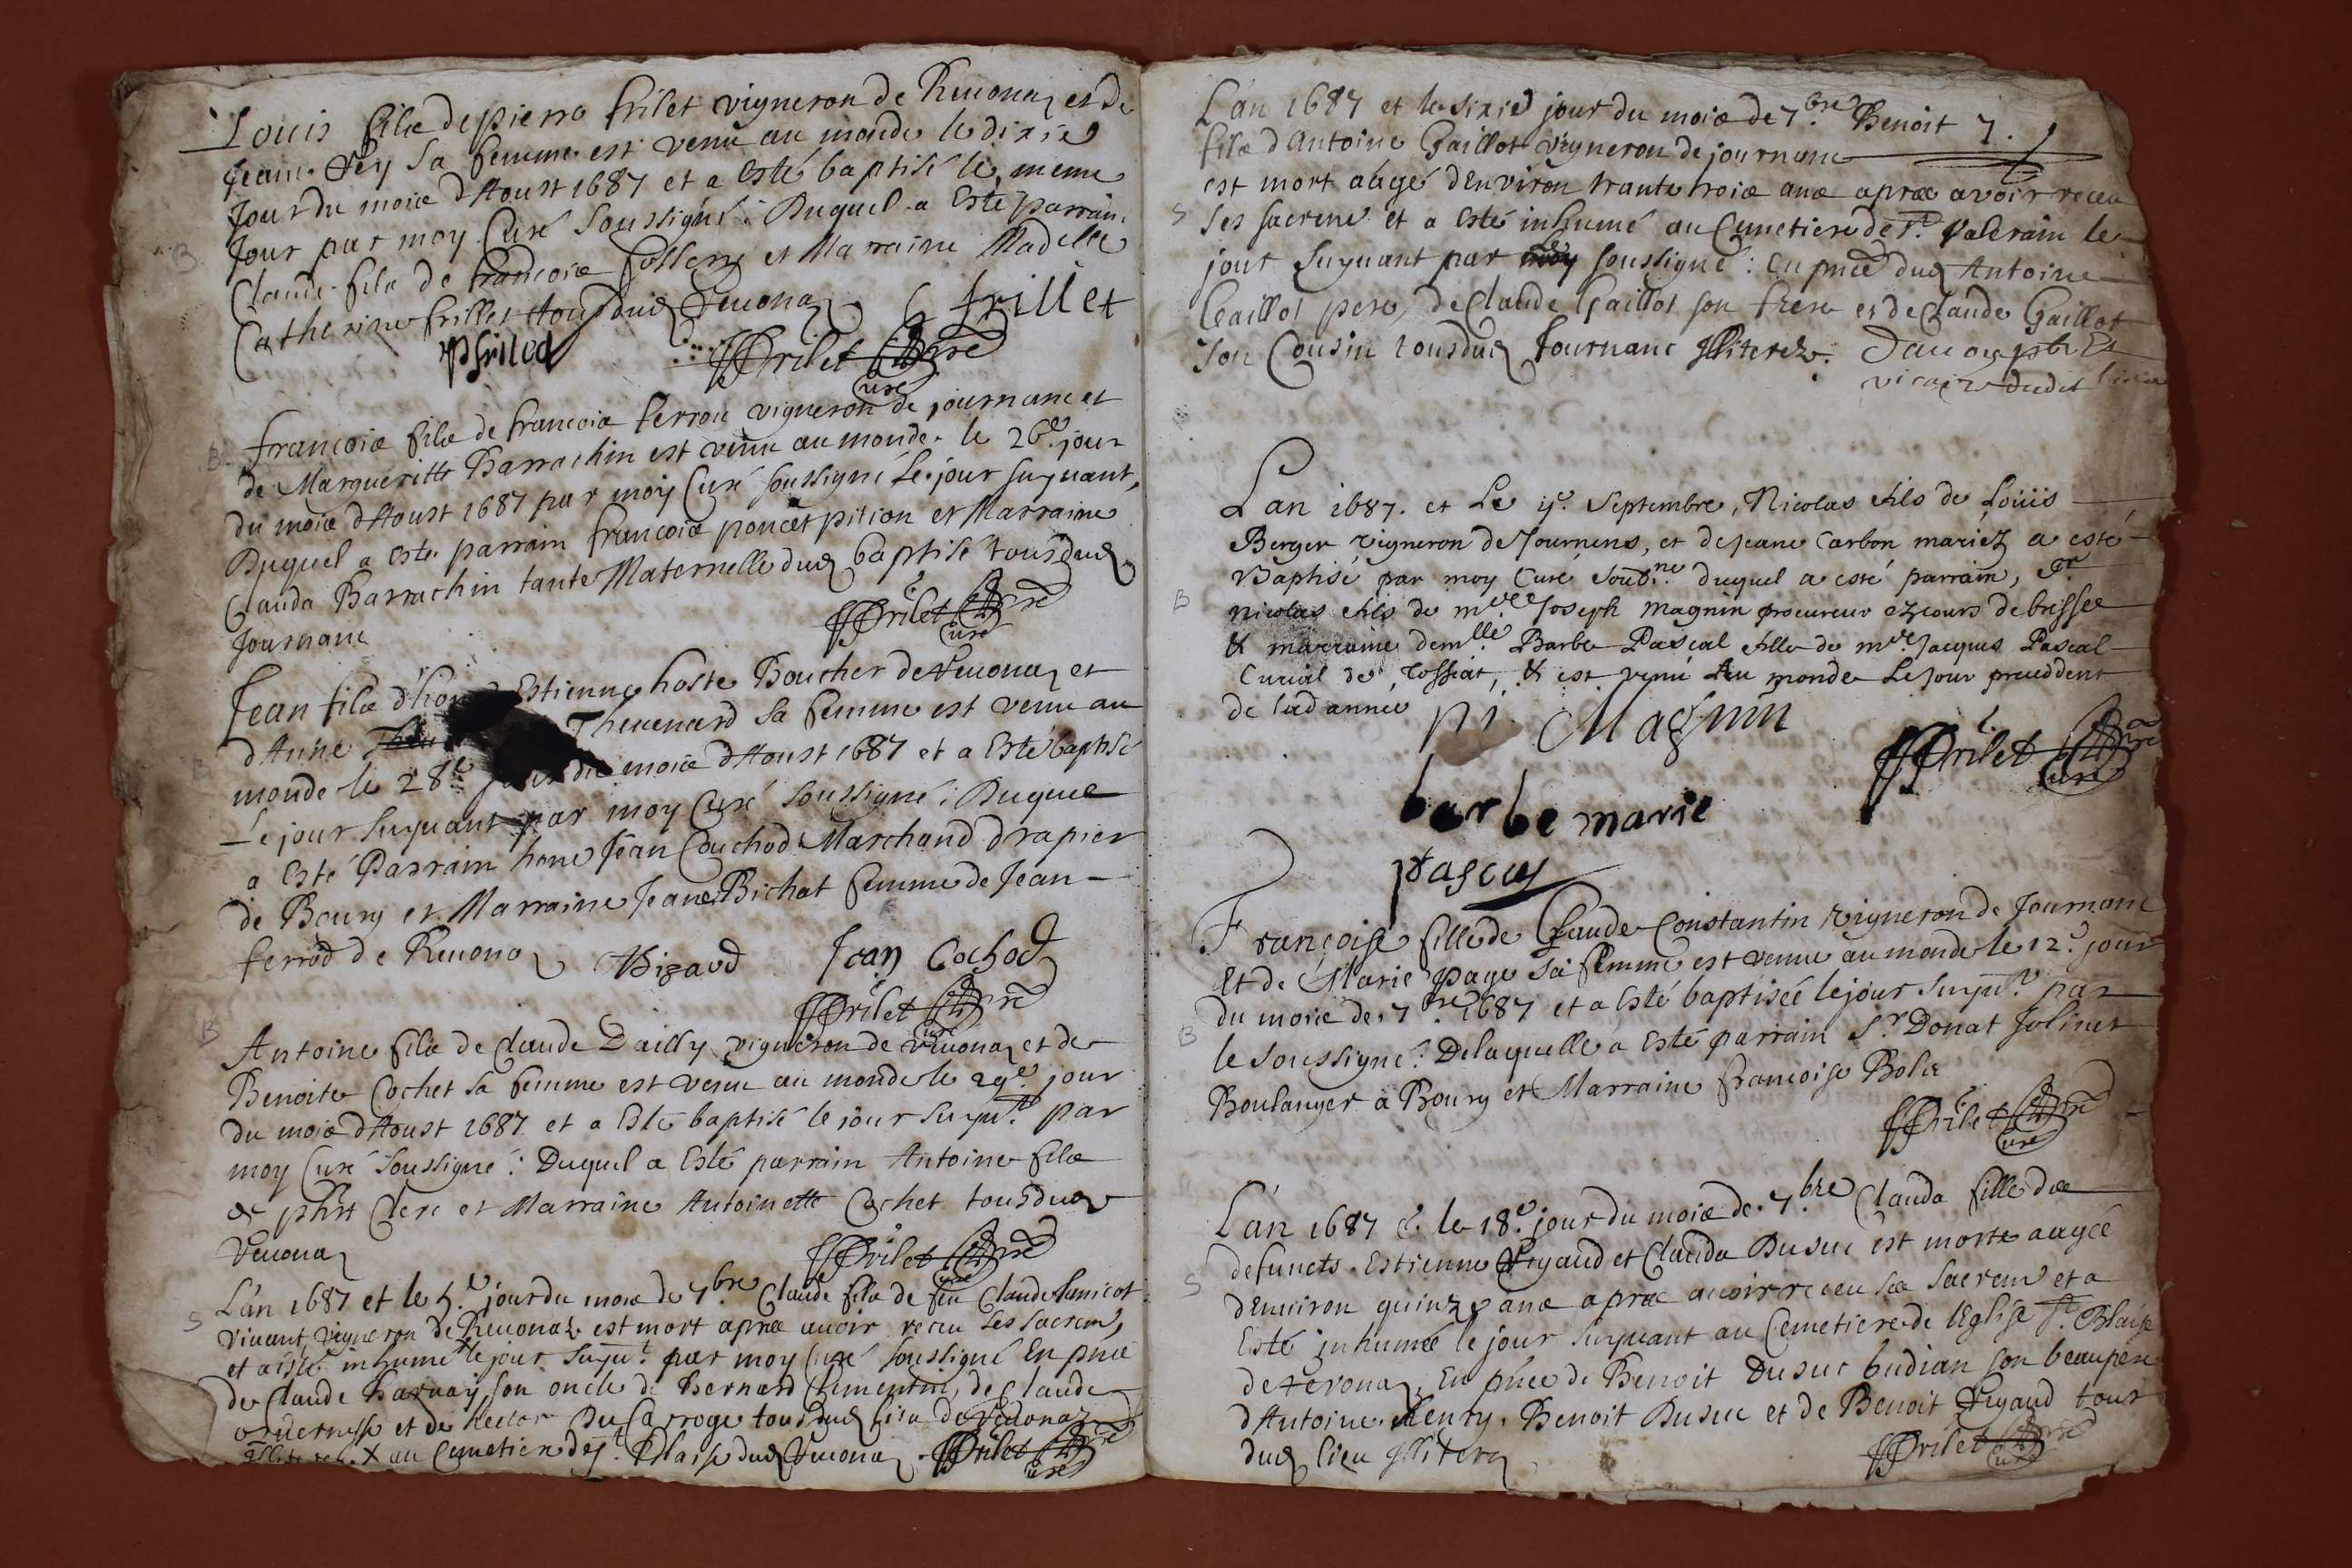 Louis fils de pierre frilet vigneron de Reuonaz et de
Jeanne Rey sa femme est venu au monde le dixie
Jour du moie d'Aoust 1687 et a esté baptisé le meme
Jour par moy Curé soussigné: Duquel a esté parrain
Claude fils de francois et Marraine Madelle
Catherine frillet tous dud Reuonaz C frillet
Pfriled FFrilet pre
Curé
B francois fils de francois ferrou vigneron de journanc et
de Margueritte Barrachin est venu au monde le 26e jour
du moie d'Aoust 1687 par moy Curé soussigné Le jour suyuant,
Duquel a esté parrain francois poncet pition et Marraine
Clauda Barrachin tante Maternelle dud baptisé tous dud
Journanc FFrilet pre
Curé
Jean fils d'hon Estienne hoste Boucher de Reuonaz et
d'Anne Theuenard sa femme est venu au
monde le 28e jour du moie d'Aoust 1687 et a Esté baptisé
Le jour suyuant par moy Curé soussigné: Duquel
a esté Parrain hone Jean Couchod Marchand drapier
de Bourg et Marraine Jeane Bichat femme de Jean
ferrod de Reuonaz Jean Cochod
FFrilet pre
Curé
B Antoine fils de Claude Dailly vigneron de Reuonaz et de
Benoite Cochet sa femme est venu au monde le 29e jour
du moie d'Aoust 1687 et a Esté baptisé le jour suyut par
moy Curé soussigné: Duquel a Esté parrain Antoine fils
de phrt Clerc et Marraine Antoinette Cochet tous dud
Reuonaz FFrilet pre
Curé
S L'an 1687 et le 5e jour du moie de 7bre Claude fils de feu Claude
viuant vigneron de Reuonaz est mort apree auoir receu ses sacrem,
et a esté inhumé le jour suyut par moy Curé soussigné En pnce
de Claude son oncle de Bernard de Claude
et de hector Du Carroge tous dud lieu de Reuonaz
Illiterez X au Cemetiere de St Blaise dud Reuonaz FFrilet pre
Curé
L'an 1687 et le sixie jour du moie de 7bre Benoit 7.
fils d'Antoine Gaillot vigneron de journanc
est mort aagé d'Environ trante troie ans apree avoir receu
S ses sacrems et a Esté inhumé au Cemetiere de St Valerain le
jour suyuant par moy soussigné: En pnce dud Antoine
Gaillot pere, de Claude Gaillot son frere et de Claude Gaillot
son Cousin tous dud Journanc Illiterez. pbr Et
vicaire dudit lieu
L'an 1687. et Le 7e. Septembre, Nicolas fils de Loüis
Berger vigneron de Journens, et de jeane Carbon mariez a esté
Baptisé par moy Curé soubne duquel a esté parrain, Sr
B nicolas fils de me Joseph magnin procureur ez cours de bresse
& marraine demlle Barbe Pascal fille de me Jacques Pascal
Curial de Tossiat, & est venu Au monde Le Jour precedent
de lad année ni Magnin
FFrilet pre
Curé
barbe marie
pascal
Françoise fille de Claude Constantin vigneron de Journanc
Et de Marie page sa femme est venue au monde le 12e jour
du moie de 7bre 1687 et a Esté baptisée le jour suyut par
B le soussigné: De laquelle a Esté parrain Sr Donat Jolinet
Boulanger a Bourg et Marraine francoise Bole
FFrilet pre
Curé
L'an 1687 & le 18e jour du moie de 7bre Clauda fille des
S defuncts Estienne Rigaud et Clauda Dusuc est morte aagée
d'Enuiron quinze ans apree auoir receu ses sacrem et a
Esté inhumée le jour suyuant au Cemetiere de l'Eglise St Blaise
de Reuonaz. En pnce de Benoit Dusuc budian son beaupere
d'Antoine Henry, Benoit Dusuc et de Benoit Rigaud tous
dud lieu Illiterez FFrilet pre
Curé